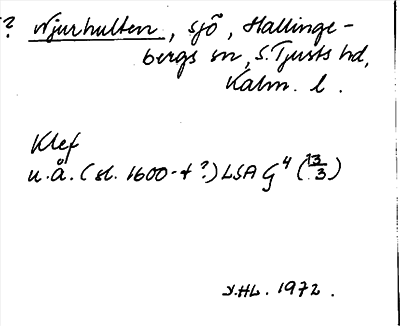 ? Njurhulten, sjö, Hallinge-
bergs sn, S. Tjusts hd,
Kalm. l.
Klef
u.å. (sl. 1600-t?) LSA G4 (13/3)
Y.HL. 1972.